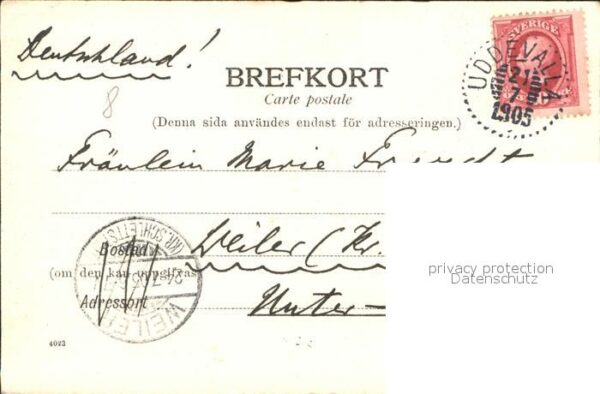 Deutschland!
SVERIGE
UDDEVALLA
21
7
1905
BREFKORT
Carte postale
(Denna sida användes endast för adresseringen.)
8
Fräulein Marie
Weiler (Kr.
Bostad
(om den kan uppgifvas
Adressort
Unter-
WEILER
(KR. SCHLETTST
24.7
privacy protection
Datenschutz
4023